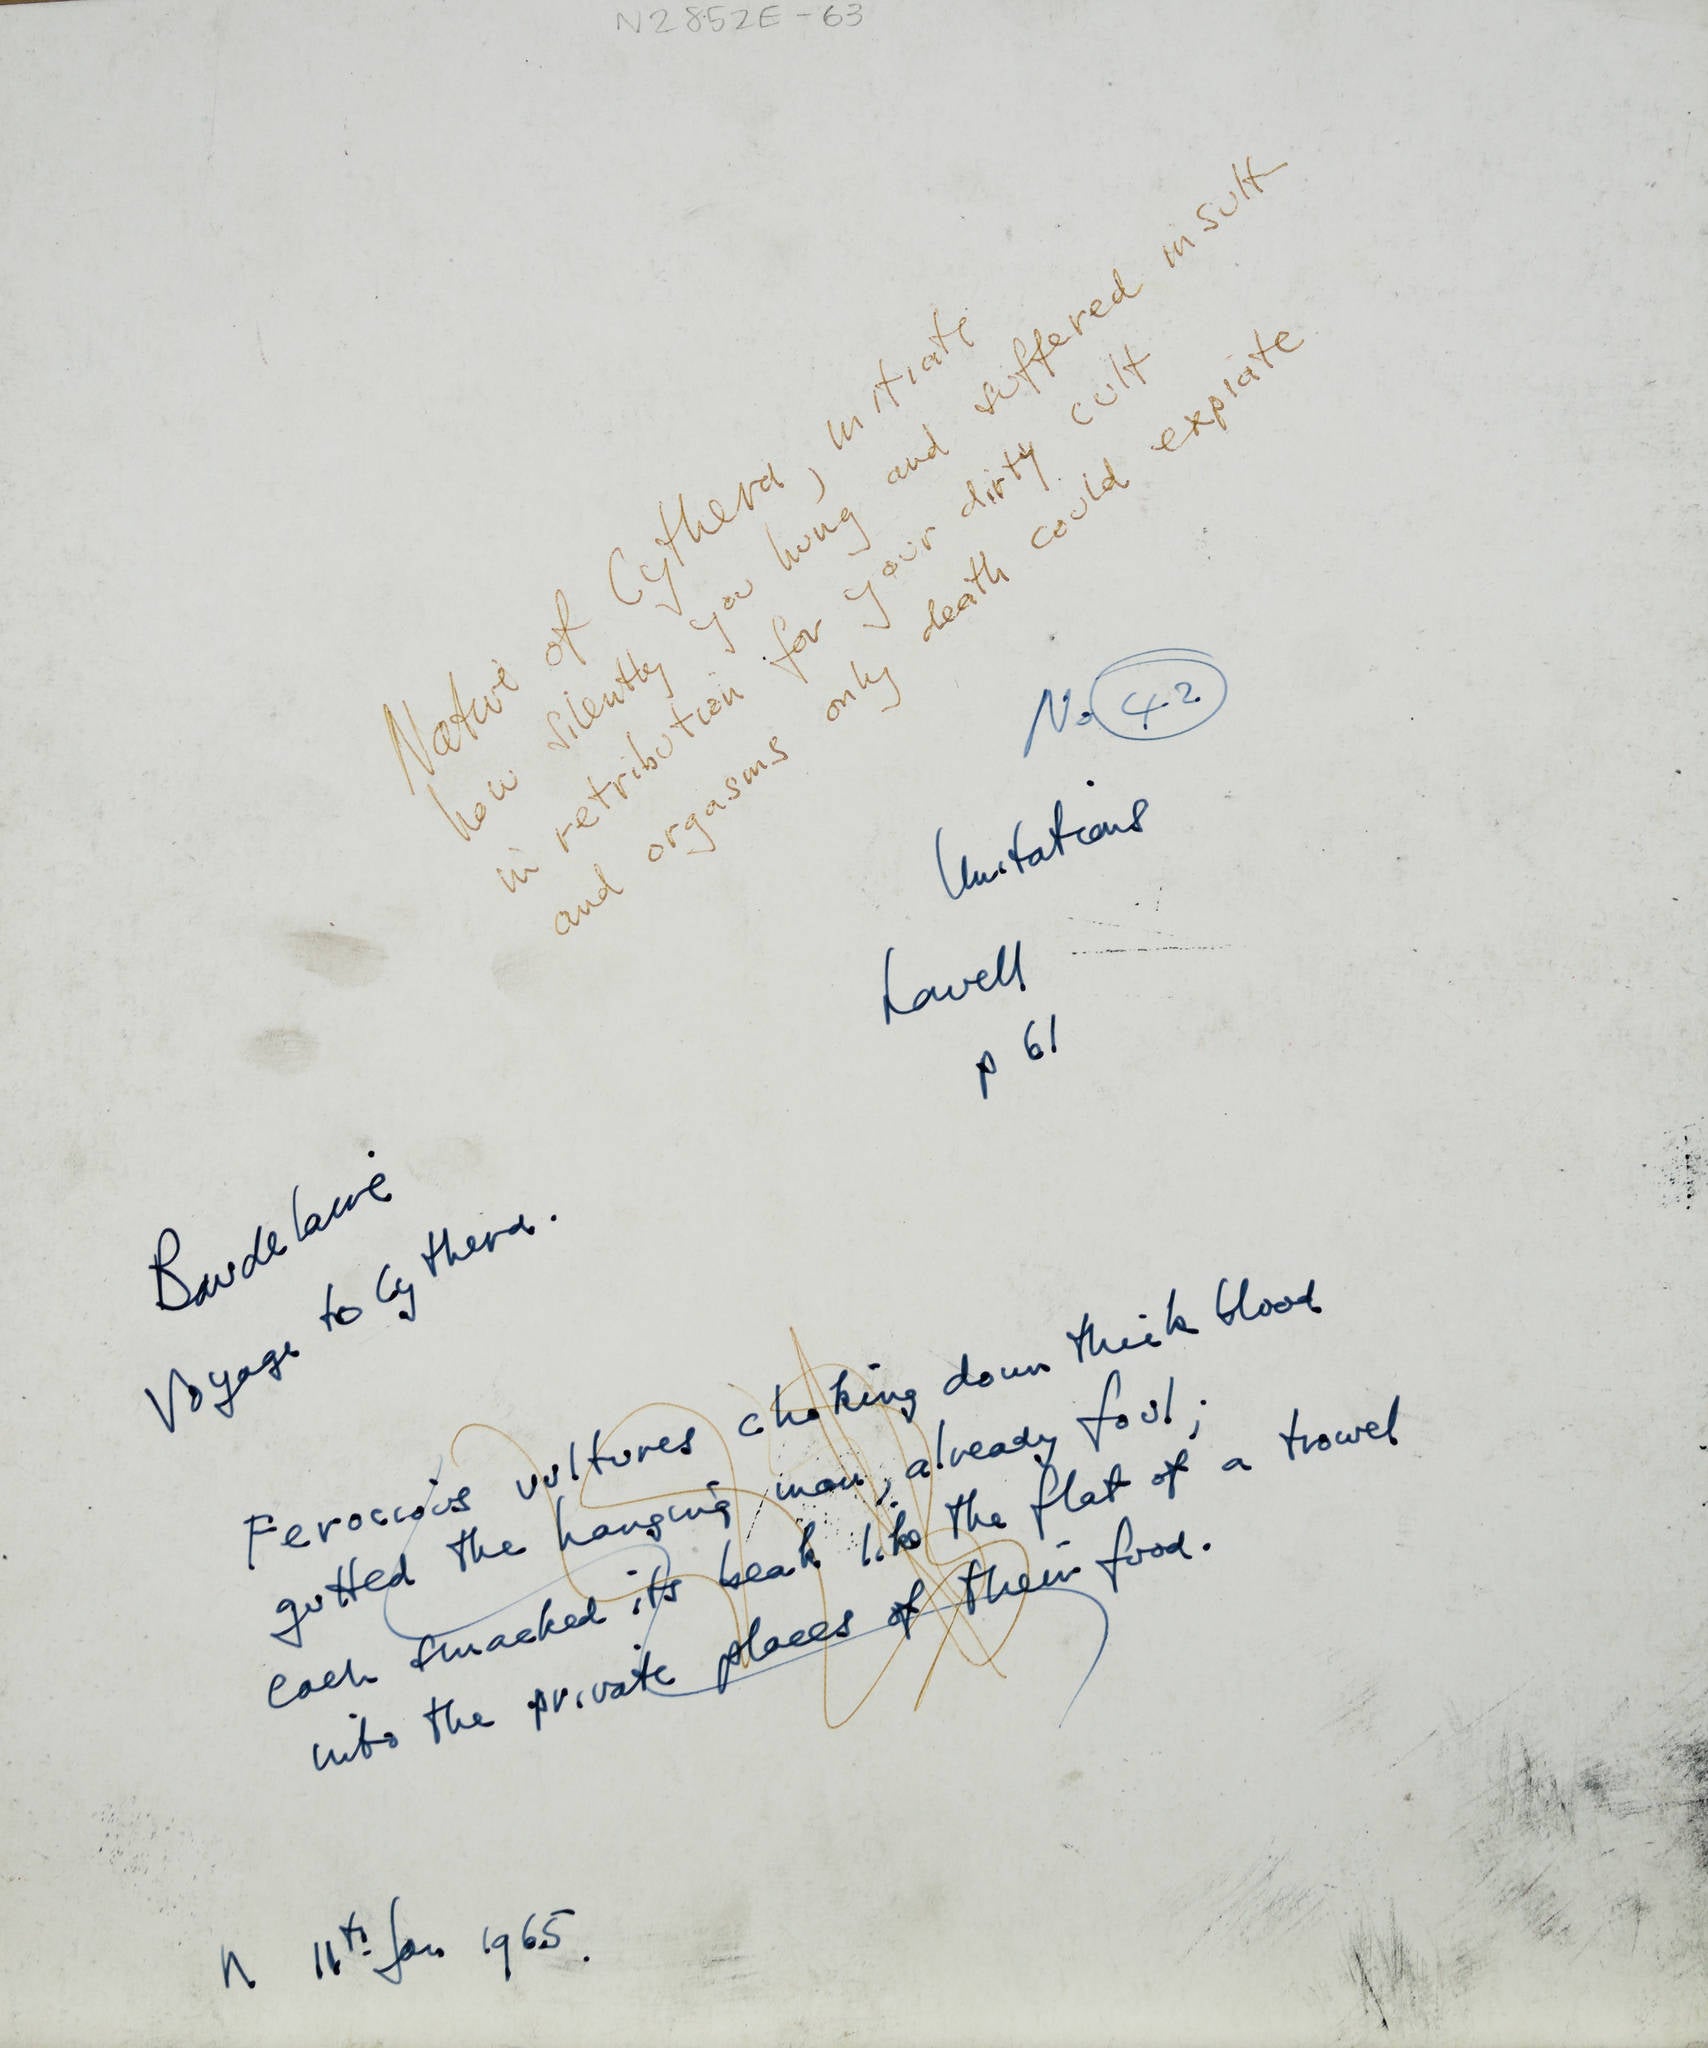 N2852E-63
Native of Cythera, initiate
how silently you hung and suffered insult
in retribution for your dirty cult
and orgasms only death could expiate
No 42
Imitations
Lowell
p 61
Baudelaire
Voyage to Cythera.
Ferocious vultures choking down thick blood
gutted the hanging man, already foul;
each smacked its beak like the flat of a trowel
into the private places of their food.
N 11th Jan 1965.